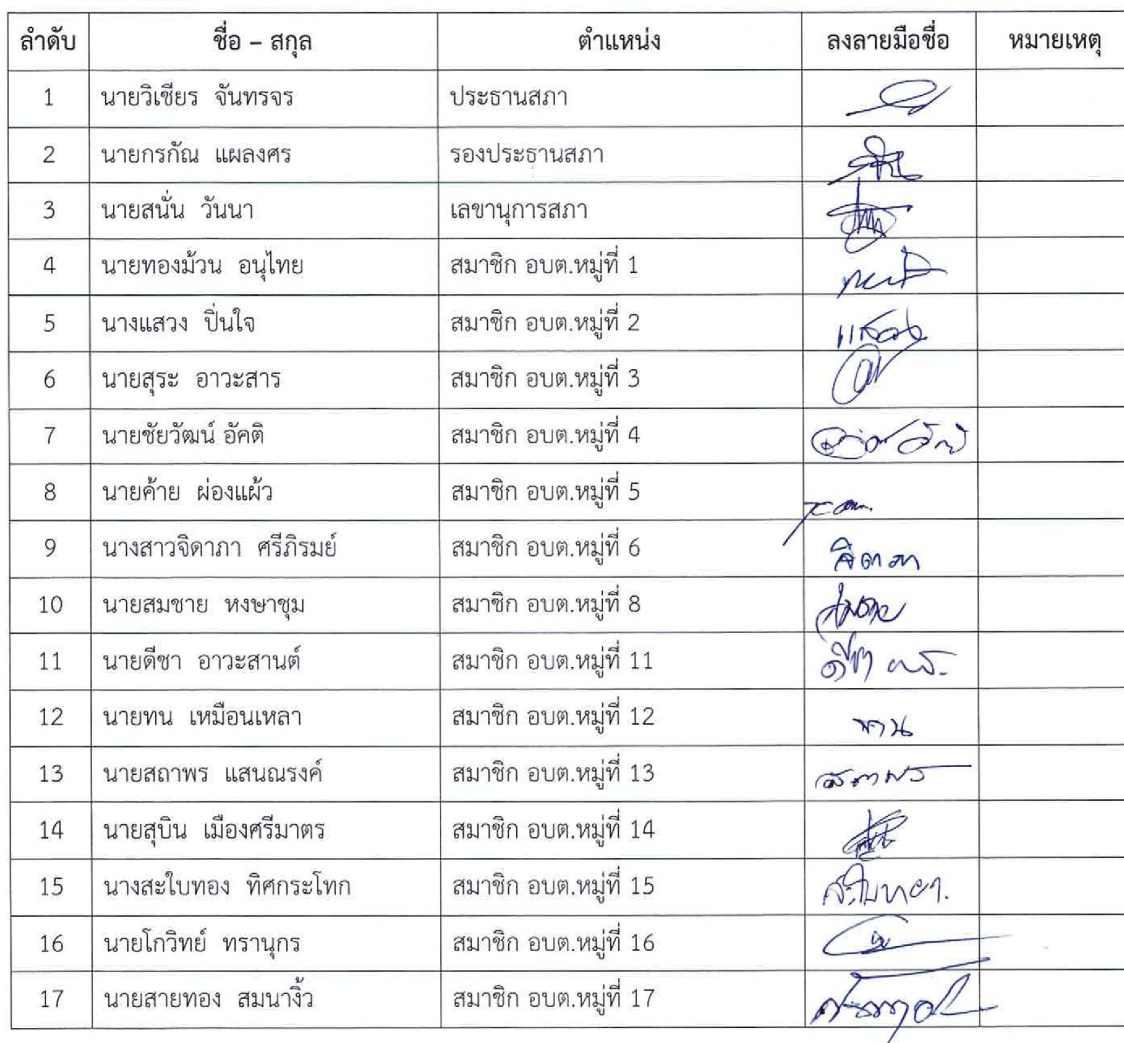 ลำดับ ชื่อ – สกุล ตำแหน่ง ลงลายมือชื่อ หมายเหตุ
1 นายวิเชียร จันทรจร ประธานสภา
2 นายกรกัณ แผลงศร รองประธานสภา
3 นายสนั่น วันนา เลขานุการสภา
4 นายทองม้วน อนุไทย สมาชิก อบต.หมู่ที่ 1
5 นางแสวง ปิ่นใจ สมาชิก อบต.หมู่ที่ 2 แสวง
6 นายสุระ อาวะสาร สมาชิก อบต.หมู่ที่ 3
7 นายชัยวัฒน์ อัคติ สมาชิก อบต.หมู่ที่ 4
8 นายค้าย ผ่องแผ้ว สมาชิก อบต.หมู่ที่ 5
9 นางสาวจิดาภา ศรีภิรมย์ สมาชิก อบต.หมู่ที่ 6 จิดาภา
10 นายสมชาย หงษาชุม สมาชิก อบต.หมู่ที่ 8 สมชาย
11 นายดีชา อาวะสานต์ สมาชิก อบต.หมู่ที่ 11 ดีชา
12 นายทน เหมือนเหลา สมาชิก อบต.หมู่ที่ 12 ทาน
13 นายสถาพร แสนณรงค์ สมาชิก อบต.หมู่ที่ 13 สถาพร
14 นายสุบิน เมืองศรีมาตร สมาชิก อบต.หมู่ที่ 14
15 นางสะใบทอง ทิศกระโทก สมาชิก อบต.หมู่ที่ 15 สะใบทอง
16 นายโกวิทย์ ทรานุกร สมาชิก อบต.หมู่ที่ 16
17 นายสายทอง สมนางิ้ว สมาชิก อบต.หมู่ที่ 17